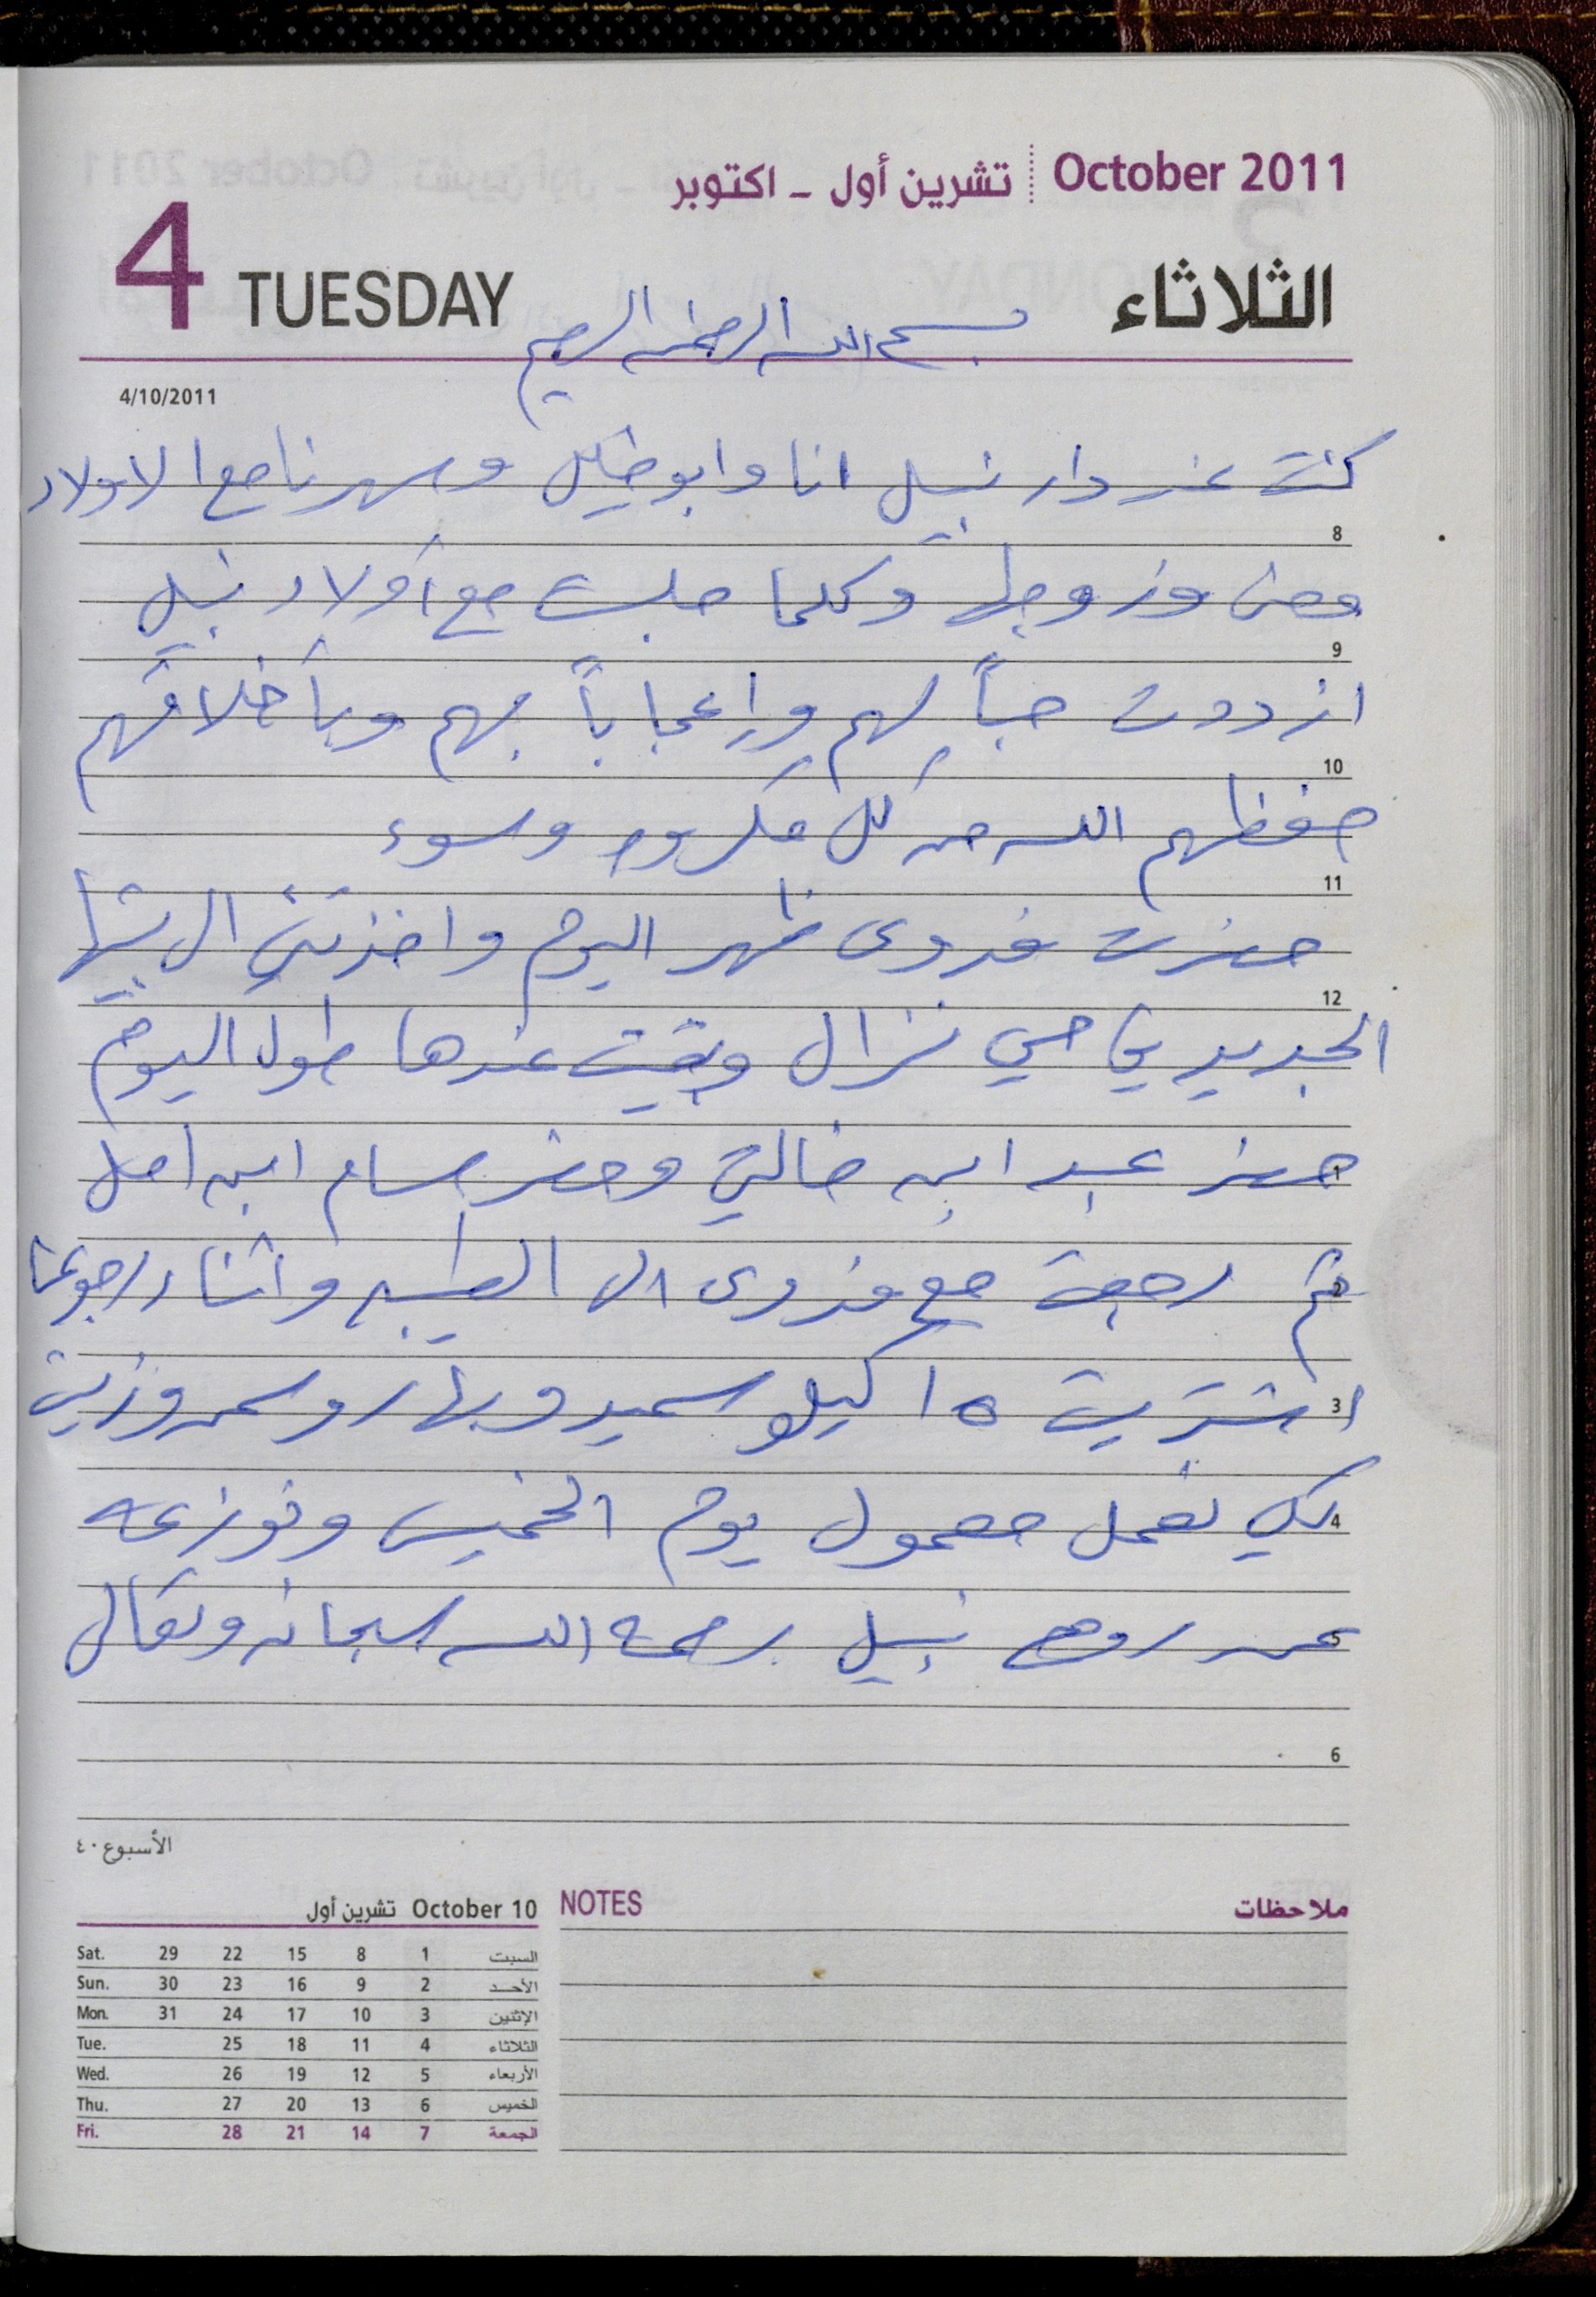 October 2011 تشرين أول - اكتوبر
4 TUESDAY الثلاثاء
بسم الله الرحمن الرحيم
4/10/2011
كنت عند دار نبيل انا وابو خليل وسهرنا مع الاولاد
8
ومنى وزوجها وكلما جلست مع أولاد نبيل
9
ازددت حباً لهم وإعجاباً بهم وبأخلاقهم
10
حفظهم الله من كل مكروه وسوء
11
حضرت فدوى ظهر اليوم واخذتني الى بيتها
12
الجديد في حي نزال وبقيت عندها طول اليوم
1
حضر عبد ابن خالتي وحضر بسام ابن امل
2
ثم رجعت مع فدوى الى الطيبه واثناء رجوعنا
3
اشتريت 15 كيلو سميد وبهار وسمن وزيت
4
لكي نعمل معمول يوم الخميس ونوزعه
5
عن روح نبيل رحمه الله سبحانه وتعالى
6
الأسبوع ٤٠
October 10 تشرين أول
Sat. 29 22 15 8 1 السبت
Sun. 30 23 16 9 2 الأحد
Mon. 31 24 17 10 3 الإثنين
Tue. 25 18 11 4 الثلاثاء
Wed. 26 19 12 5 الأربعاء
Thu. 27 20 13 6 الخميس
Fri. 28 21 14 7 الجمعة
NOTES ملاحظات